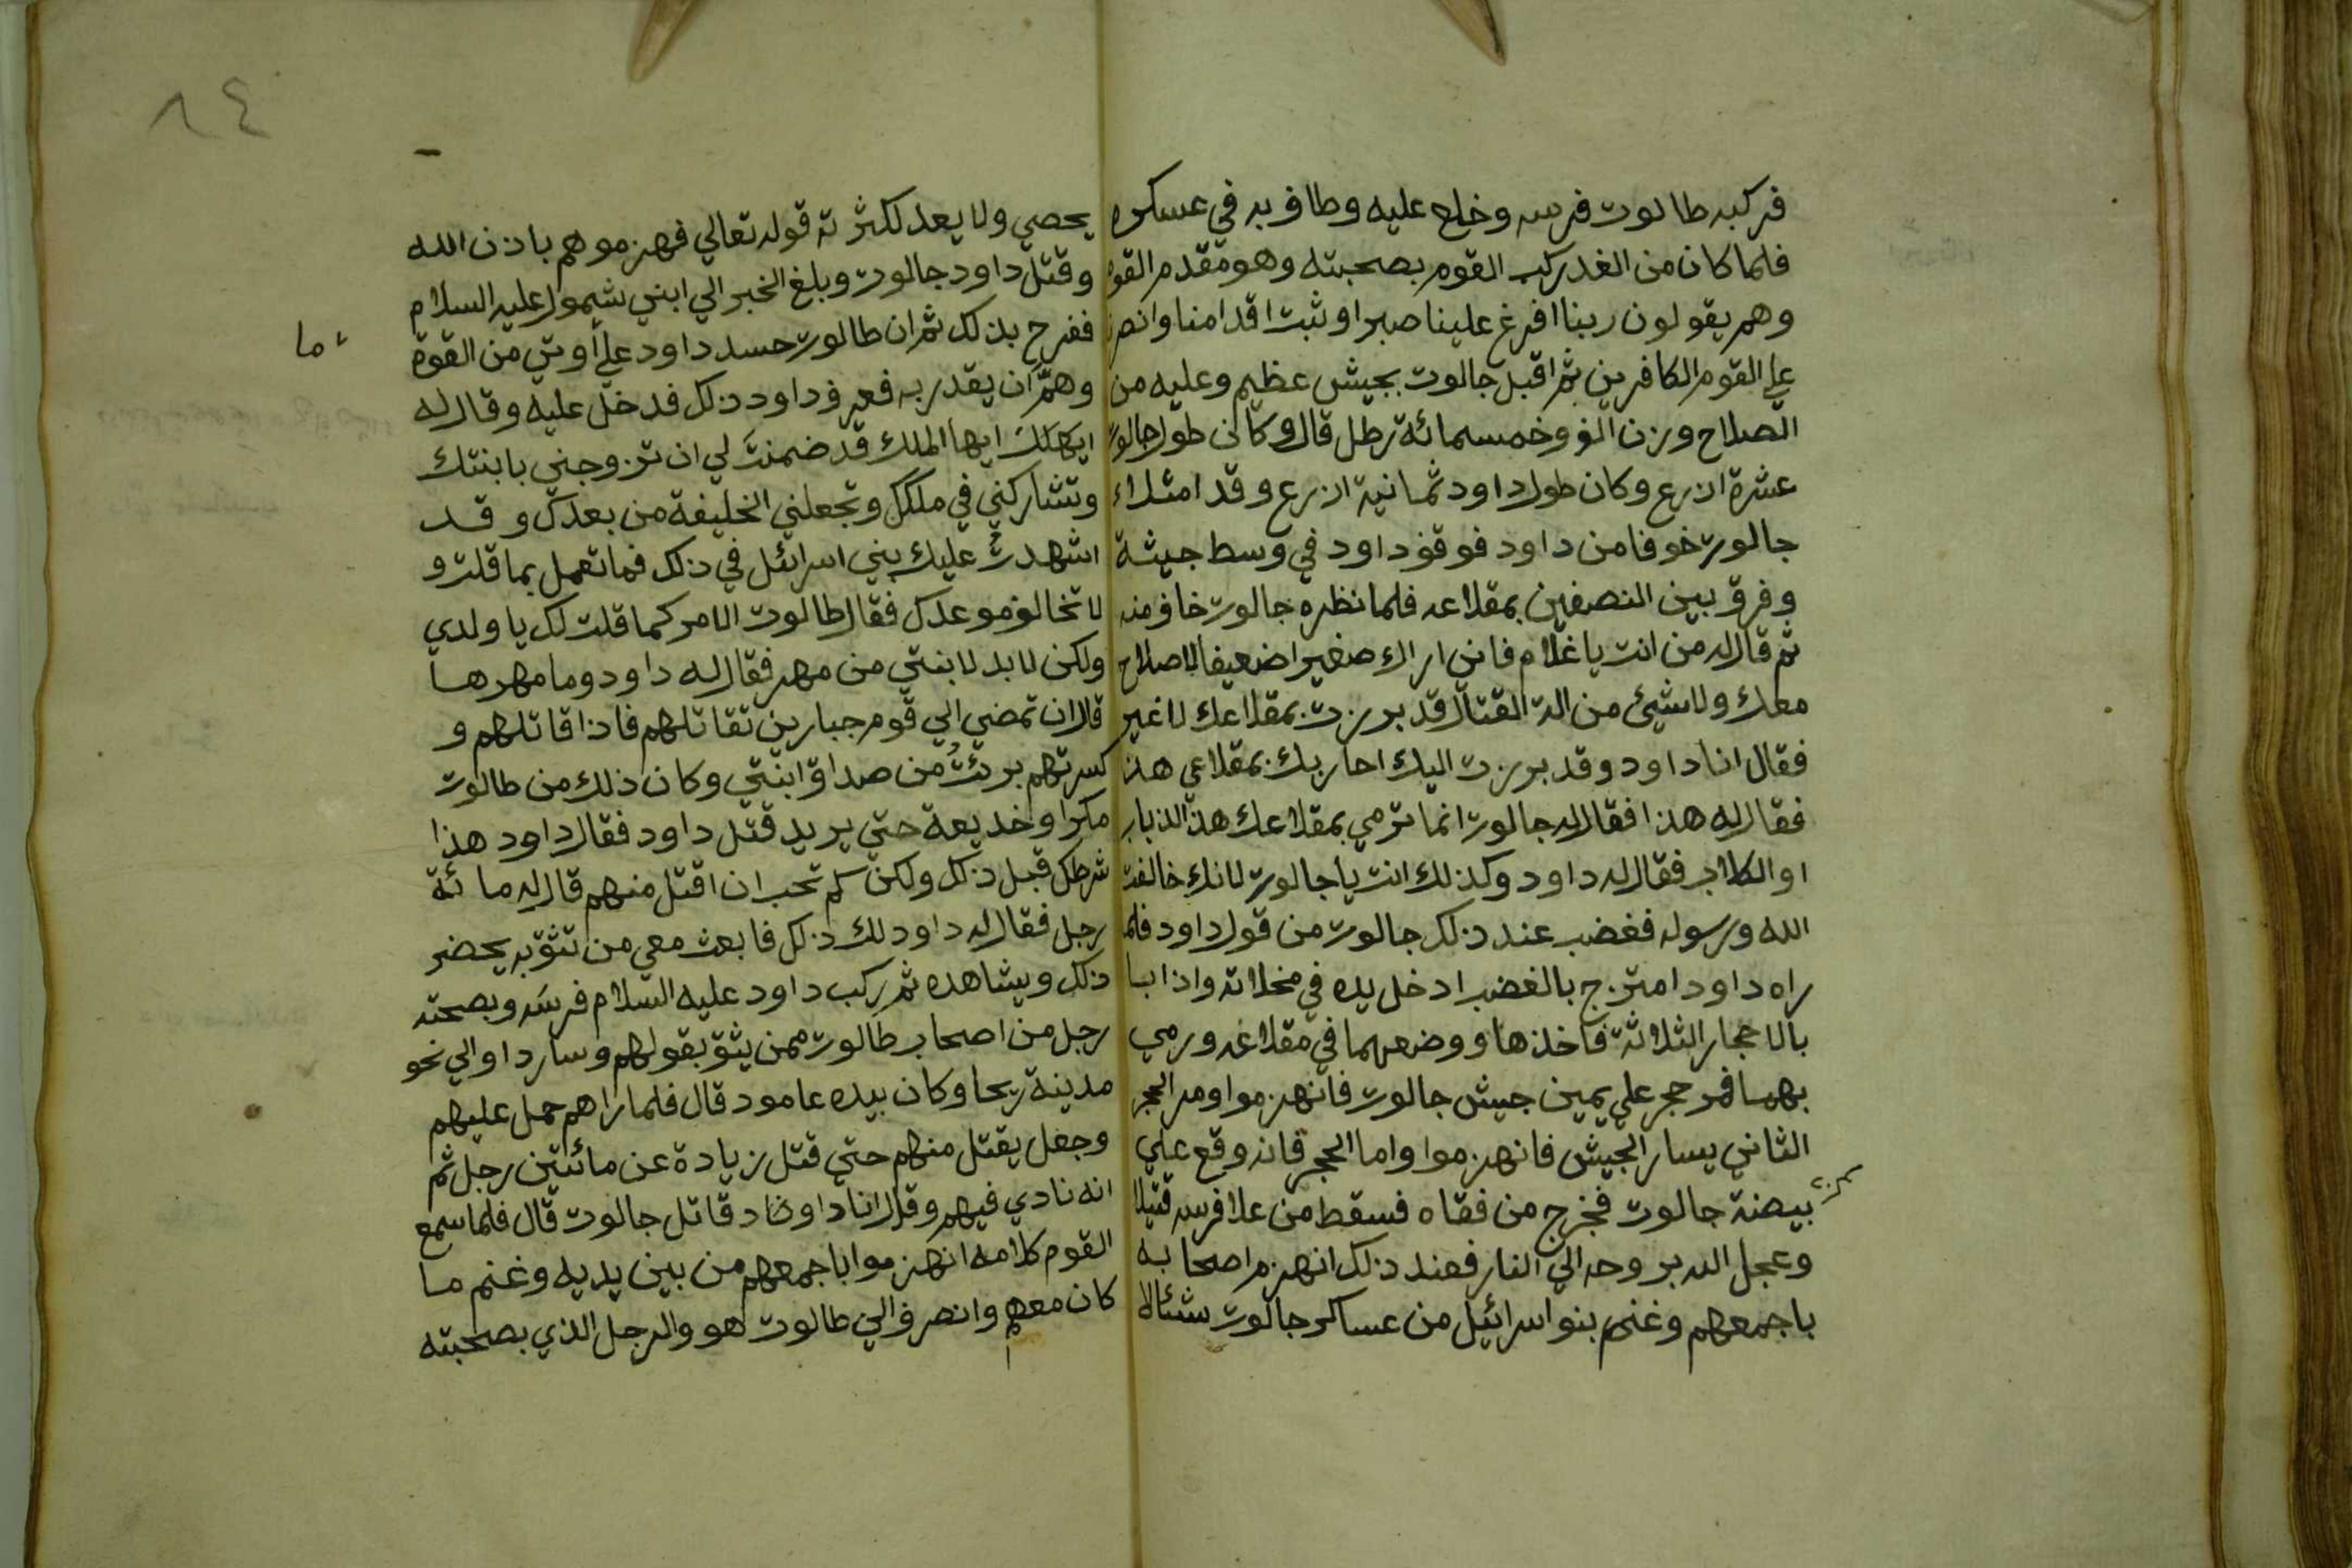 فركبه طالوت فرسه وخلع عليه وطاف به في عسكره
فلما كان من الغد ركب القوم بصحبته وهو مقدم القوم
وهم يقولون ربنا افرغ علينا صبرا وثبت اقدامنا وانصرنا
علي القوم الكافرين ثم اقبل جالوت بجيش عظيم وعليه من
الصلاح وزن الف وخمسمائة رطل قال وكان طول جالوت
عشرة اذرع وكان طول داود ثمانية اذرع وقد امتلاء
جالوت خوفا من داود فوقف داود في وسط جيشة
وفرق بين النصفين بمقلاعه فلما نظره جالوت خاف منه
ثم قال له من انت يا غلام فاني اراك صغيرا ضعيفا لا صلاح
معك ولا شيئ من الة القتال قد برزت بمقلاعك لا غير
فقال انا داود وقد برزت اليك احاربك بمقلاعي هذا
فقال له هذا فقال له جالوت انما ترمي بمقلاعك هذ الذباب
او الكلاب فقال له داود وكذلك انت يا جالوت لانك خالفت
الله ورسوله فغضب عند ذلك جالوت من قول داود فلما
راه داود امتزج بالغضب ادخل يده في مخلاته واذا ابا
بالاحجار الثلاثة فاخذها ووضعهما في مقلاعه ورمي
بهما فمر حجر علي يمين جيش جالوت فانهزموا ومر الحجر
الثاني يسار الجيش فانهزموا واما الحجر فانه وقع علي
بيضة جالوت فخرج من فقاه فسقط من علا فرسه قتيلا
وعجل الله بروحه الي النار فعند ذلك انهزم اصحابه
باجمعهم وغنم بنو اسرائيل من عساكر جالوت شئالا
٨٤
يحصي ولا يعد لكثرته قوله تعالي فهزموهم باذن الله
وقتل داود جالوت وبلغ الخبر الي ابني شيمول عليه السلام
ففرح بذلك ثم ان طالوت حسد داود علي اوتي من القوة
ما
وهمّ ان يقدر به فعرف داود ذلك فدخل عليه وقال له
ايها الملك قد ضمنت لي ان تزوجني بابنتك
وتشاركني في ملكك وتجعلني الخليفة من بعدك وقد
اشهدتُ عليك بني اسرائيل في ذلك فما تعمل بما قلت و
لا تخالف موعدك فقال طالوت الامر كما قلت لك يا ولدي
ولكن لا بد لابنتي من مهر فقال له داود وما مهرها
قال ان تمضي الي قوم جبارين تقاتلهم فاذا قاتلهم و
كسرتهم برئتُ من صداق ابنتي وكان ذلك من طالوت
مكرا وخديعة حتي يريد قتل داود فقال داود هذا
شرطك قبل ذلك ولكن كم تحب ان اقتل منهم قال له مائة
رجل فقال له داود لك ذلك فابعث معي من تثق به يحضر
ذلك ويشاهده ثم ركب داود عليه السلام فرسَه وبصحته
رجل من اصحاب طالوت ممن يثق بقولهم وسار داو الي نحو
مدينة ريحا وكان بيده عامود قال فلما راهم حمل عليهم
وجعل يقتل منهم حتي قتل زيادة عن مائتين رجل ثم
انه نادي فيهم وقال انا داود قاتل جالوت قال فلما سمع
القوم كلامه انهزموا باجمعهم من بين يديه وغنم ما
كان معهم وانصرف الي طالوت هو والرجل الذي بصحبته